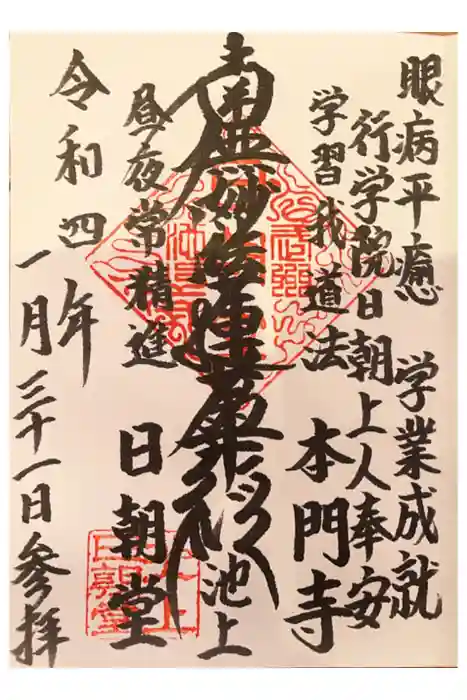 眼病平癒 学業成就
行学院日朝上人奉安
学習我道法 本門寺
南無妙法蓮華経 池上
昼夜常精進 日朝堂
令和四年
一月三十一日參拝